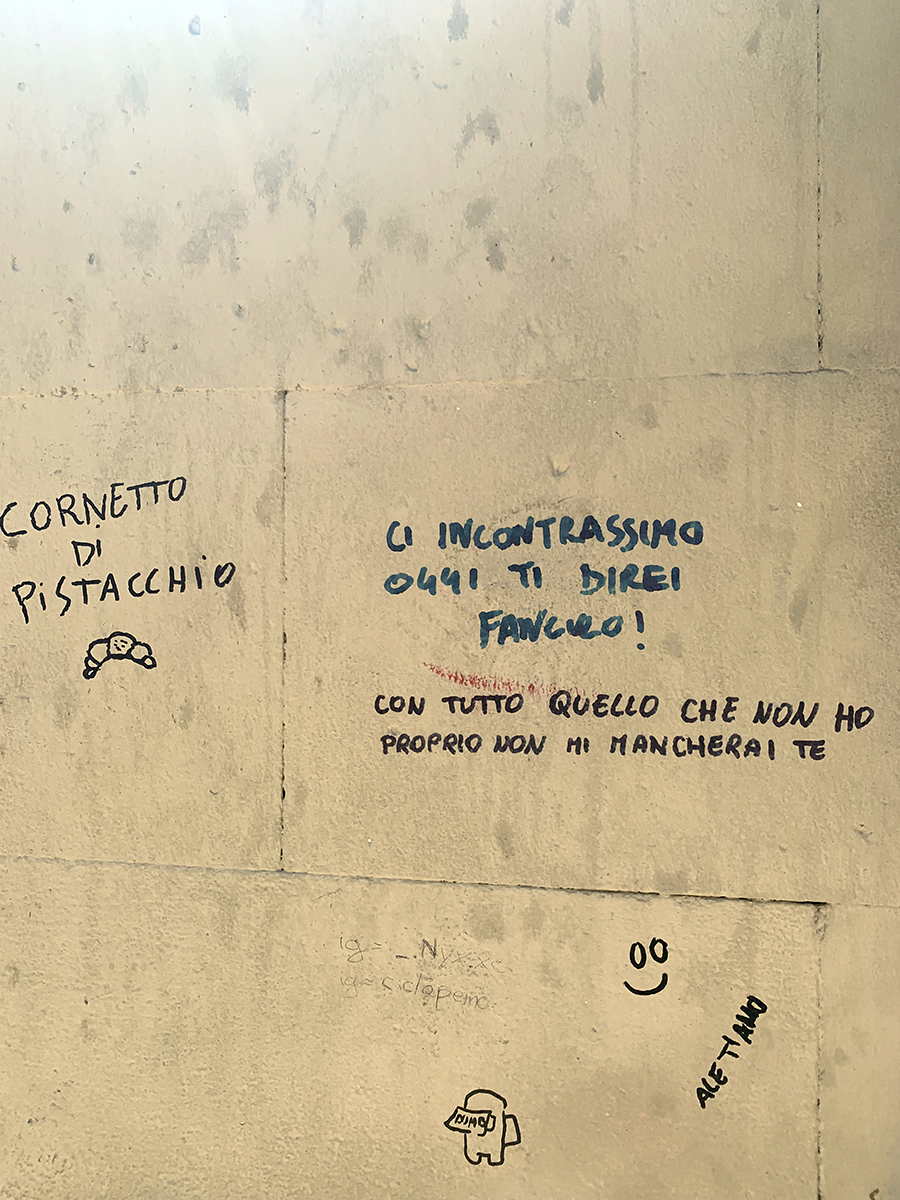 CORNETTO
DI
PiSTACCHiO
CI INCONTRASSIMO
OGGI TI DIREI
FANCULO!
CON TUTTO QUELLO CHE NON HO
PROPRIO NON MI MANCHERAI TE
ig = _Nyx.xc
ig= ciclopeino
ALE TI AMO